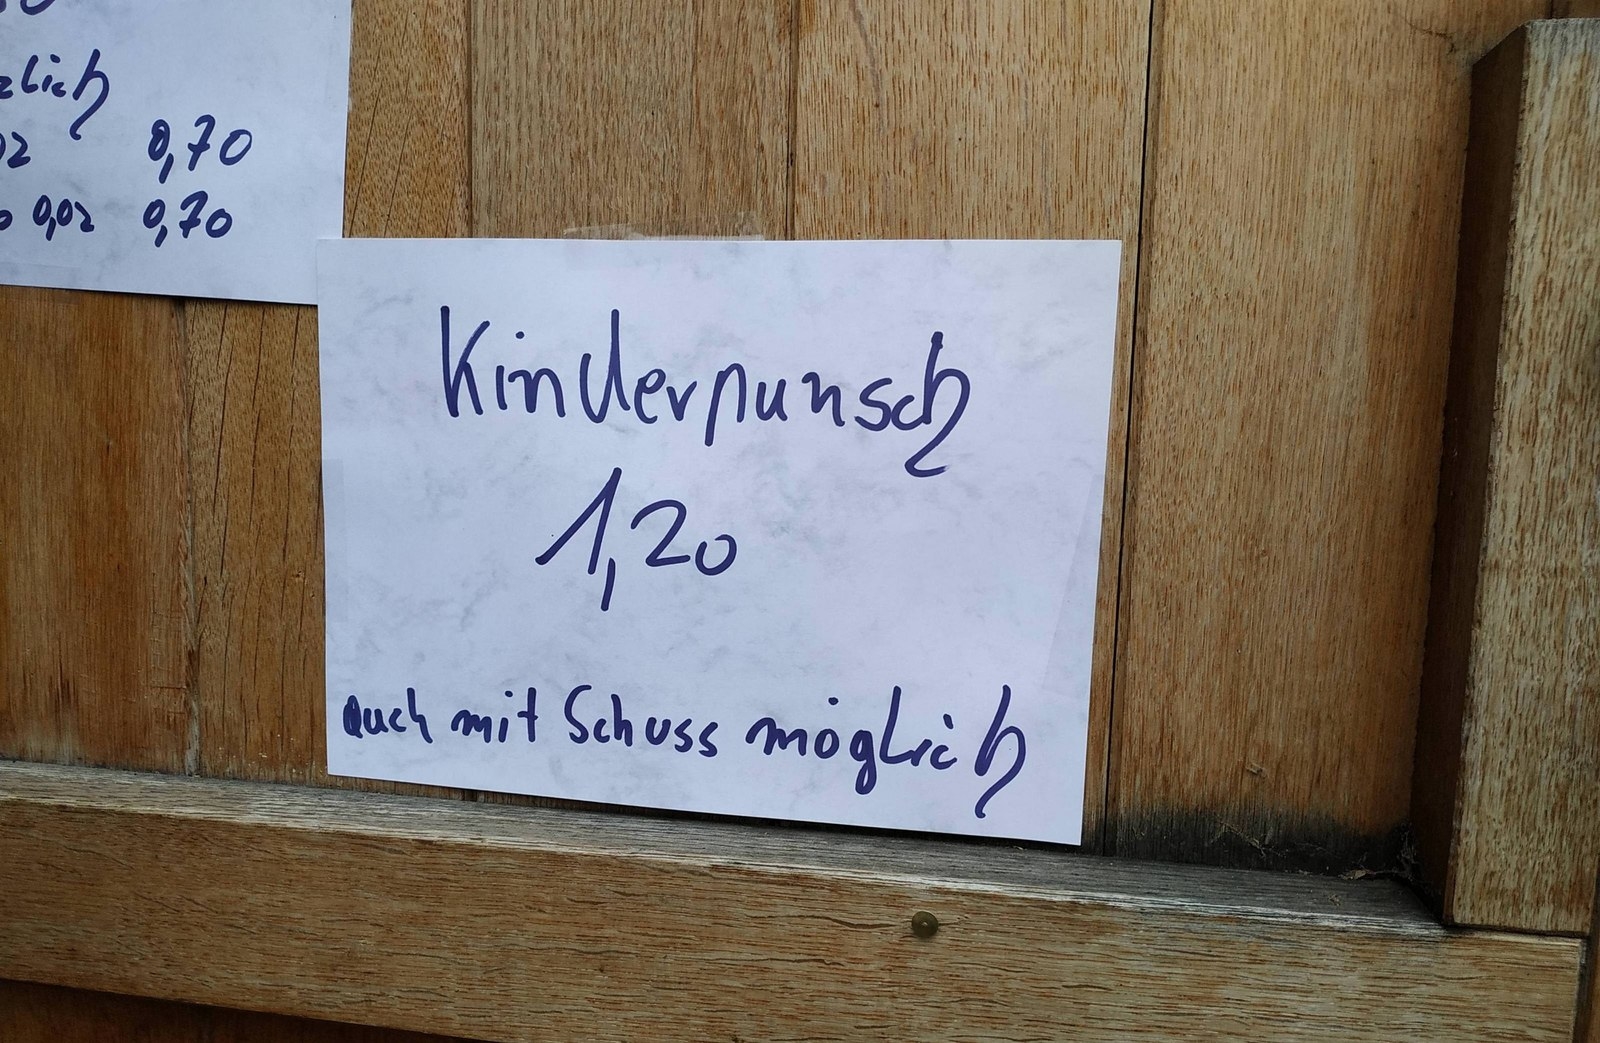 0,70
0,02 0,70
Kinderpunsch
1,20
auch mit Schuss möglich